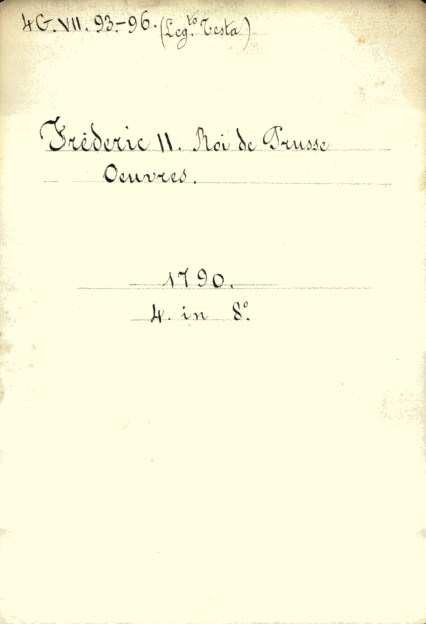 4G.VII. 93.-96. (Leg.to Testa)
Fréderic II. Roi de Prusse
Oeuvres.
1790.
4. in 8º.